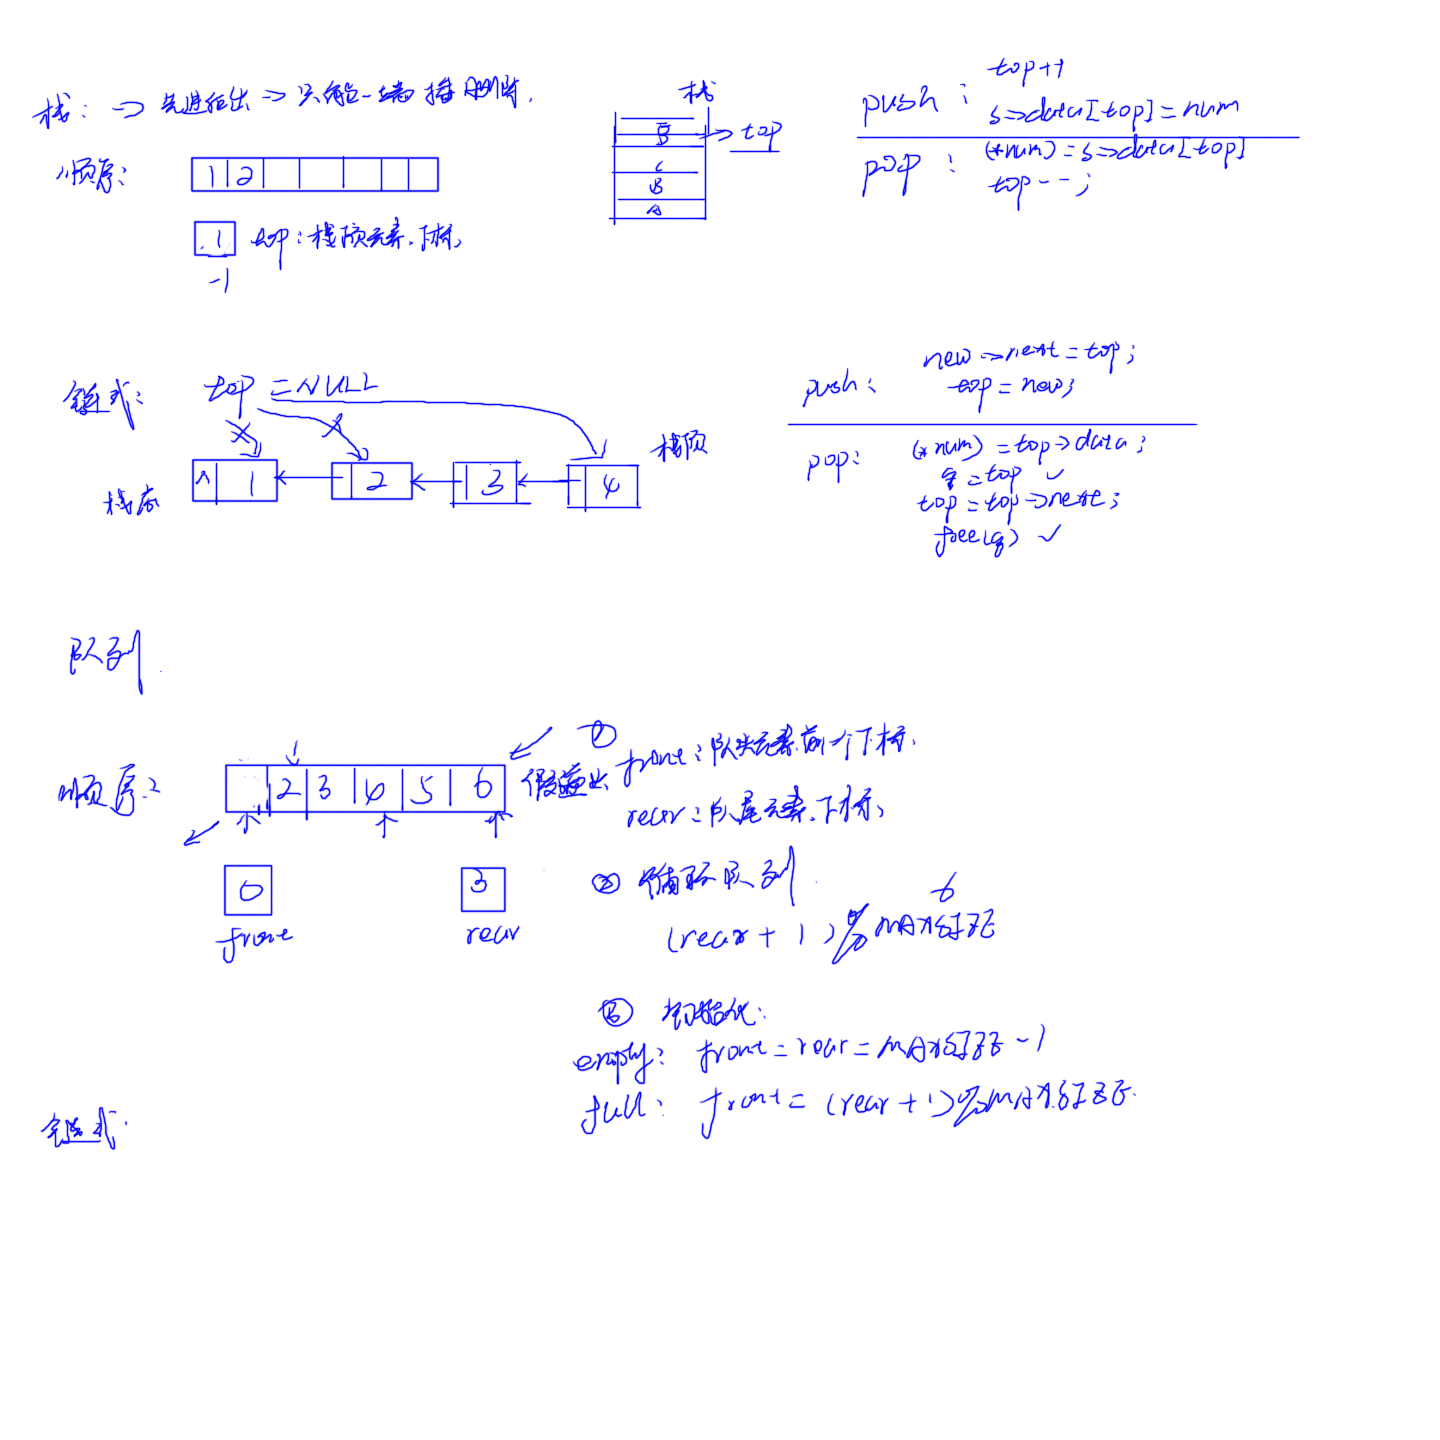 栈: => 先进后出 => 只能一端插删除.
栈
D -> top
C
B
A
push: top++
s->data[top]=num
pop: (*num)=s->data[top]
top--;
顺序:
1 2
1 top:栈顶元素.下标,
-1
链式: top =NULL
栈底 ^ 1 2 3 4 栈顶
push: new->next=top;
top=new;
pop: (*num)=top->data;
q=top ✓
top=top->next;
free(q) ✓
队列.
顺序:
2 3 4 5 6 假溢出
0 front
3 rear
① front:队头元素前一个下标.
rear:队尾元素.下标,
② 循环队列.
6
(rear+1)%MAXSIZE
③ 初始化:
empty: front=rear=MAXSIZE-1
full: front=(rear+1)%MAXSIZE.
链式.